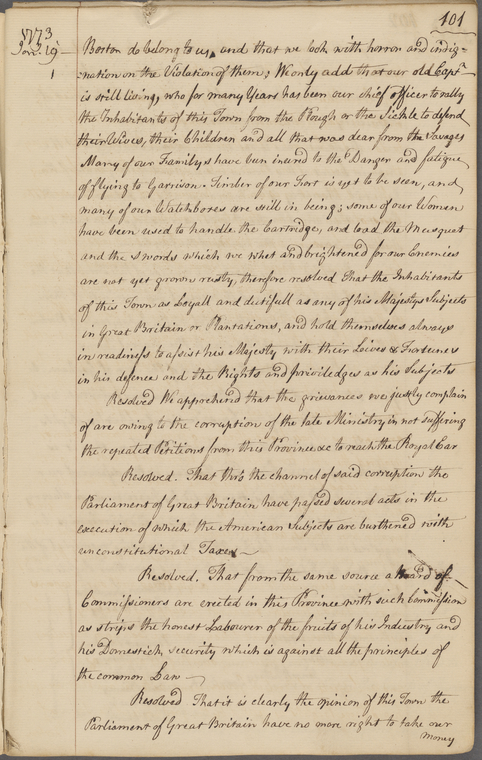 101
1773
Jan. 19
1
Boston do belong to us, and that we look with horror and indig-
-nation on the Violation of them; We only add that our old Capt.
is still living, who for many Years has been our chief officer to rally
the Inhabitants of this Town from the Plough or the Sickle to defend
their Wives, their Children and all that was dear from the Savages
Many of our Familys have been inured to the Danger and fatigue
of flying to Garrison. Timber of our Fort is yet to be seen, and
many of our Watchboxes are still in being; some of our Women
have been used to handle the Cartridge, and load the Musquat
and the swords which we whet and brightened for our Enemies
are not yet grown rusty, therefore resolved That the Inhabitants
of this Town as Loyall and dutifull as any of his Majestys Subjects
in Great Britain or Plantations, and hold themselves always
in readiness to assist his Majesty with their Lives & Fortunes
in his defence and the Rights and priviledges as his Subjects
Resolved We apprehend that the grievances we justly complain
of are owing to the corruption of the late Ministry in not suffering
the repeated Petitions from this Province &c to reach the Royal Ear
Resolved. That thro the channel of said corruption the
Parliament of Great Britain have passed several acts in the
execution of which the American Subjects are burthened with
unconstitutional Taxes
Resolved, That from the same source a board of
Commissioners are erected in this Province with such Commission
as strips the honest Labourer of the fruits of his Industry and
his Domestick security which is against all the principles of
the common Law
Resolved That it is clearly the opinion of this Town the
Parliament of Great Britain have no more right to take our
money